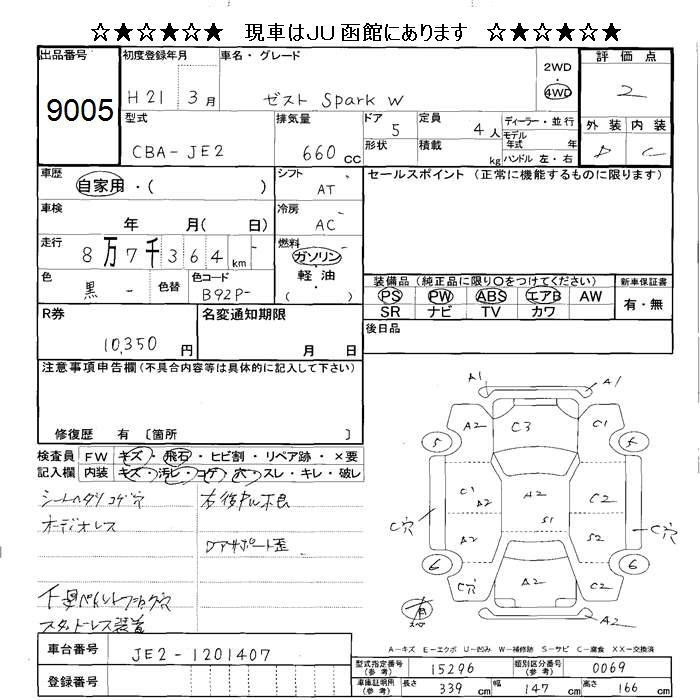 ☆★☆★☆★ 現車はJU函館にあります ☆★☆★☆★
出品番号
9005
初度登録年月
H21 3月
車名・グレード
ゼスト Spark W
2WD
・
4WD
評価点
2
外装 内装
D C
型式
CBA-JE2
排気量
660cc
ドア
5
形状
定員
4人
積載
kg
ディーラー・並行
モデル年式 年
ハンドル 左・右
車歴
自家用・( )
シフト
AT
セールスポイント (正常に機能するものに限ります)
車検
年 月( 日)
冷房
AC
走行
8万7千364km
燃料
ガソリン
軽油
( )
色
黒
色替
色コード
B92P-
装備品 (純正品に限り○をつけてください)
PS PW ABS エアB AW
SR ナビ TV カワ
新車保証書
有・無
R券
10,350円
名変通知期限
月 日
後日品
注意事項申告欄 (不具合内容等は具体的に記入して下さい)
修復歴 有 〔箇所 〕
検査員記入欄
FW キズ・飛石・ヒビ割・リペア跡・×要
内装 キズ・汚レ・コゲ・穴・スレ・キレ・破レ
シートヘタリコゲ穴
オーディオレス
スタットレス装着
A1 A1
A2 C3 C1
5 5
C穴 C1 A2 A2 C2 C穴
A2 S1 S2
6 6
C穴 A2 C2
A2
A-キズ E-エクボ U-凹み W-補修跡 S-サビ C-腐食 XX-交換済
車台番号
JE2-1201407
登録番号
型式指定番号(参考)
15296
類別区分番号(参考)
0069
車庫証明用(参考)
長さ 339cm
幅 147cm
高さ 166cm